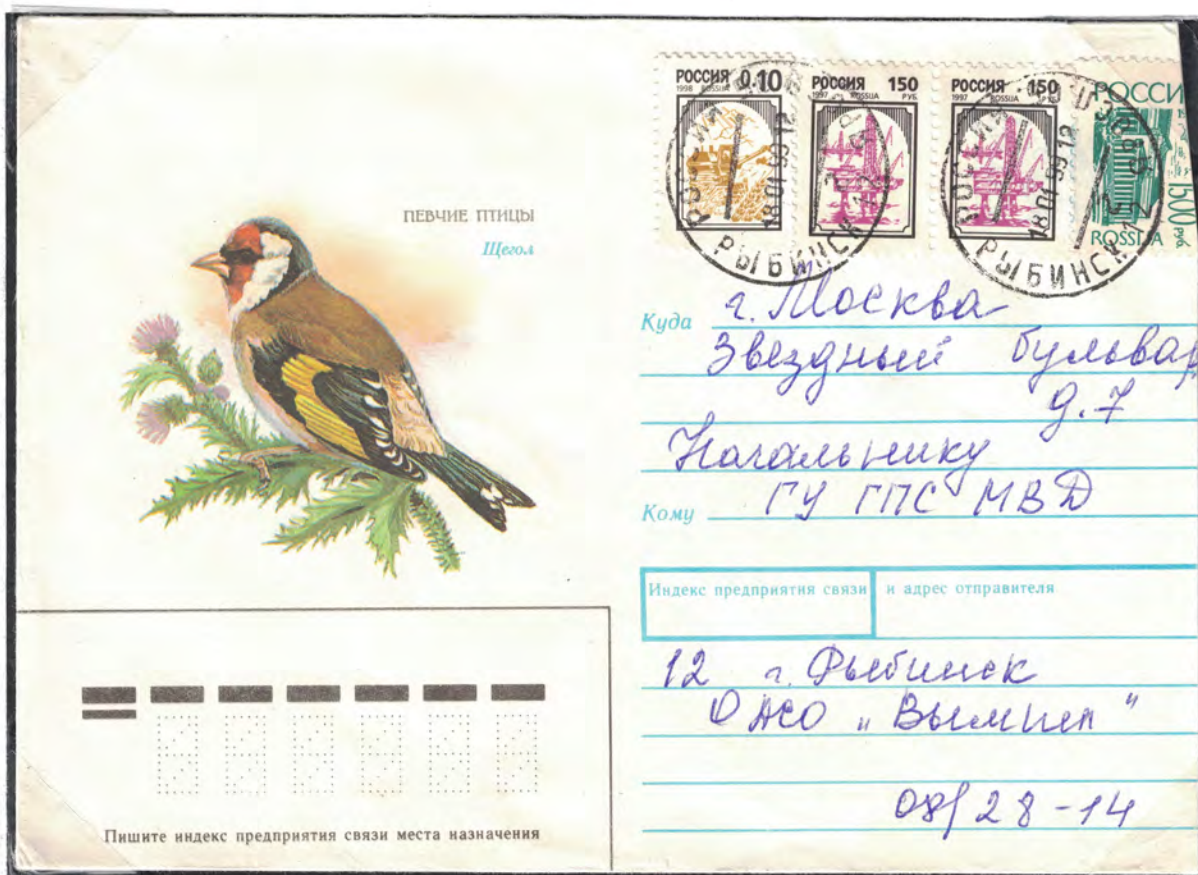 РОССИЯ 0.10
1998 ROSSIJA
РОССИЯ 150
1997 ROSSIJA РУБ.
РОССИЯ 150
1997 ROSSIJA РУБ.
РОССИ
1500 РУБ.
ROSSIJA
РОССИЯ
18 01 99 12
РЫБИНСК 12
РОССИЯ
18 01 99 12
РЫБИНСК 12
ПЕВЧИЕ ПТИЦЫ
Щегол
Куда г. Москва
Звездный бульвар
д. 7
Начальнику
Кому ГУ ГПС МВД
Индекс предприятия связи и адрес отправителя
12 г. Рыбинск
ОАО „Вымпел"
08/28-14
Пишите индекс предприятия связи места назначения